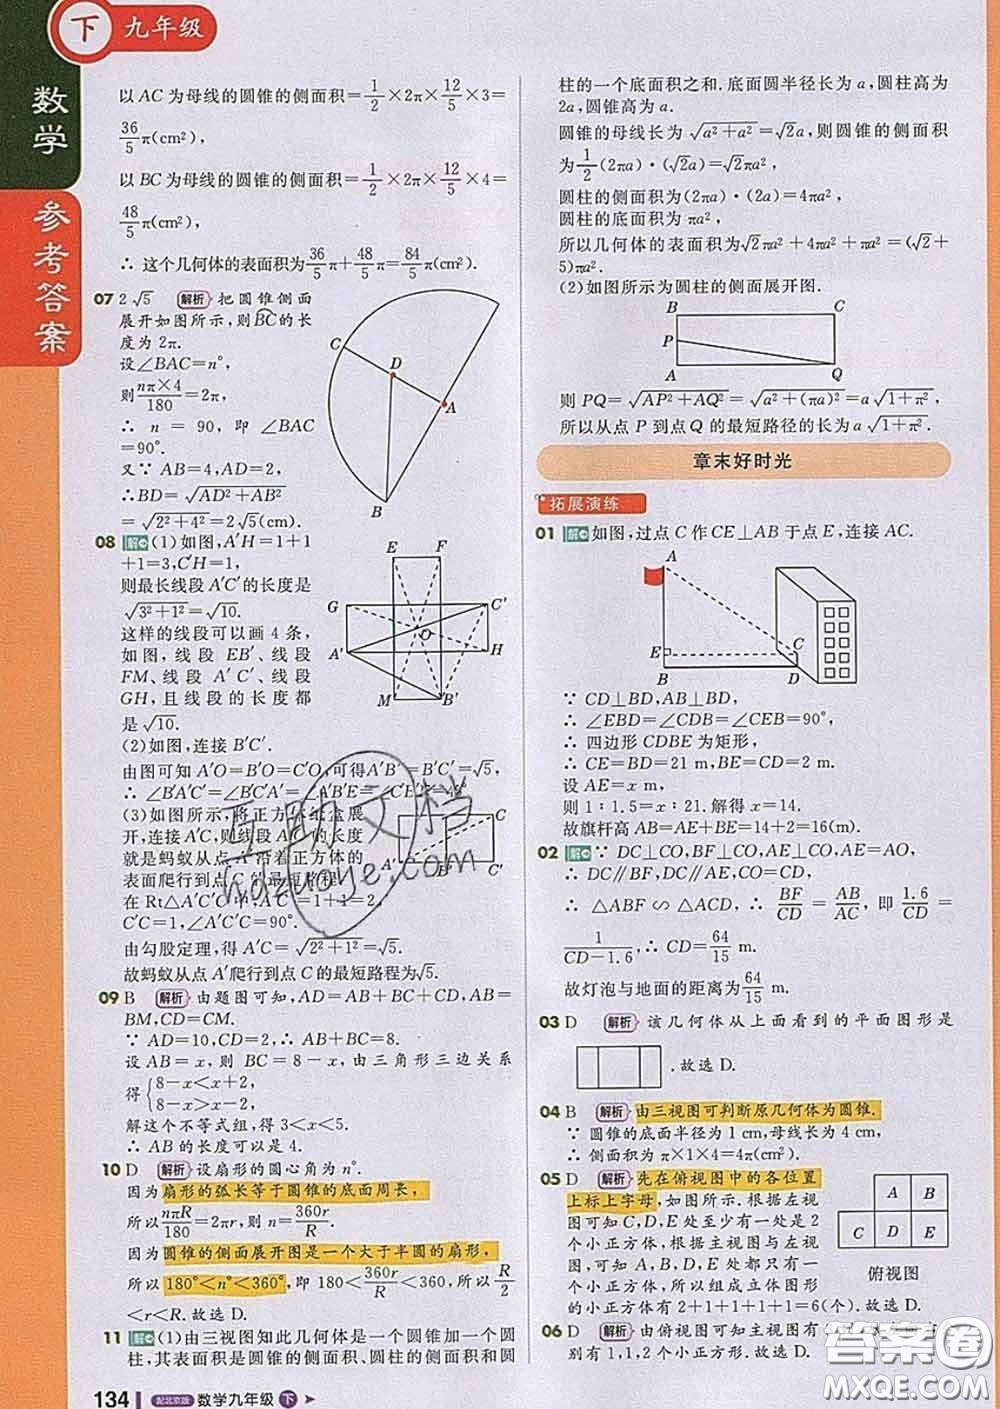 下 九年级
数学
参考答案
以 AC 为母线的圆锥的侧面积=1/2×2π×12/5×3=
36/5π(cm²),
以 BC 为母线的圆锥的侧面积=1/2×2π×12/5×4=
48/5π(cm²),
∴ 这个几何体的表面积为36/5π+48/5π=84/5π(cm²).
07 2√5 解析 把圆锥侧面
展开如图所示,则BC的长
度为 2π.
设∠BAC=n°,
则nπ×4/180=2π,
∴ n = 90, 即 ∠BAC
=90°.
又∵ AB=4,AD=2,
∴BD=√(AD²+AB²)
=√(2²+4²)=2√5(cm).
C
D
A
B
08 解 (1)如图,A′H=1+1
+1=3,C′H=1,
则最长线段 A′C′的长度是
√(3²+1²)=√10.
这样的线段可以画 4 条,
如图,线段 EB′、线段
FM、线段 A′C′、线段
GH,且线段的长度都
是√10.
E F
G C′
O
A′ H
M B′
(2)如图,连接 B′C′.
由图可知 A′O=B′O=C′O,可得A′B′=B′C′=√5,
∴ ∠B′A′C′=∠B′C′A′=∠A′B′E=
(3)如图所示,将正方体纸盒展
开,连接 A′C,则线段 A′C 的长度
就是蚂蚁从点 A′沿着正方体的
表面爬行到点 C 的最短路程.
在 Rt△A′C′C 中,A′C′=1+1=2,
C′C=1,∠A′C′C=90°.
由勾股定理,得 A′C=√(2²+1²)=√5.
故蚂蚁从点 A′爬行到点 C 的最短路程为√5.
C
A′ C′
09 B 解析 由题图可知,AD=AB+BC+CD,AB=
BM,CD=CM.
∵ AD=10,CD=2,∴ AB+BC=8.
设 AB=x,则 BC=8-x,由三角形三边关系
得{8-x<x+2,
8-x>x-2,
解这个不等式组,得 3<x<5.
∴ AB 的长度可以是 4.
10 D 解析 设扇形的圆心角为 n°.
因为扇形的弧长等于圆锥的底面周长,
所以nπR/180=2πr,则 n=360r/R.
因为圆锥的侧面展开图是一个大于半圆的扇形,
所以 180°<n°<360°,即 180<360r/R<360,所以R/2
<r<R.故选 D.
11 解 (1)由三视图知此几何体是一个圆锥加一个圆
柱,其表面积是圆锥的侧面积、圆柱的侧面积和圆
134 配北京版 数学九年级 下
柱的一个底面积之和.底面圆半径长为 a,圆柱高为
2a,圆锥高为 a.
圆锥的母线长为 √(a²+a²)=√2a,则圆锥的侧面积
为1/2(2πa)·(√2a)=√2πa²,
圆柱的侧面积为(2πa)·(2a)=4πa²,
圆柱的底面积为 πa²,
所以几何体的表面积为√2πa²+4πa²+πa²=(√2+
5)πa².
(2)如图所示为圆柱的侧面展开图.
B C
P
A Q
则 PQ=√(AP²+AQ²)=√(a²+(πa)²)=a√(1+π²),
所以从点 P 到点 Q 的最短路径的长为 a√(1+π²).
章末好时光
拓展演练
01 解 如图,过点 C 作 CE⊥AB 于点 E,连接 AC.
A
E C
B D
∵ CD⊥BD,AB⊥BD,
∴ ∠EBD=∠CDB=∠CEB=90°,
∴ 四边形 CDBE 为矩形,
∴ CE=BD=21 m,BE=CD=2 m.
设 AE=x m,
则 1∶1.5=x∶21.解得 x=14.
故旗杆高 AB=AE+BE=14+2=16(m).
02 解 ∵ DC⊥CO,BF⊥CO,AE⊥CO,AE=AO,
∴ DC∥BF,DC=AC,
∴ △ABF∽△ACD,∴ BF/CD=AB/AC,即1.6/CD=
1/(CD-1.6),∴ CD=64/15 m.
故灯泡与地面的距离为64/15 m.
03 D 解析 该几何体从上面看到的平面图形是
.故选 D.
04 B 解析 由三视图可判断原几何体为圆锥.
∵ 圆锥的底面半径为 1 cm,母线长为 4 cm,
∴ 侧面积为 π×1×4=4π(cm²).
05 D 解析 先在俯视图中的各位置
上标上字母,如图所示.根据左视
图可知 C,D,E 处至少有一处是 2
个小正方体,根据主视图与左视
图可知 A,B,D,E 处都只有一个
小正方体,所以组成立体图形的小
正方体有 2+1+1+1+1=6(个).故选 D.
A B
C D E
俯视图
06 D 解析 由俯视图可知主视图有
别有 1,1,2 个小正方形.故选 D.
互助文档
hdzuoye.com
答案圈
MXQE.COM